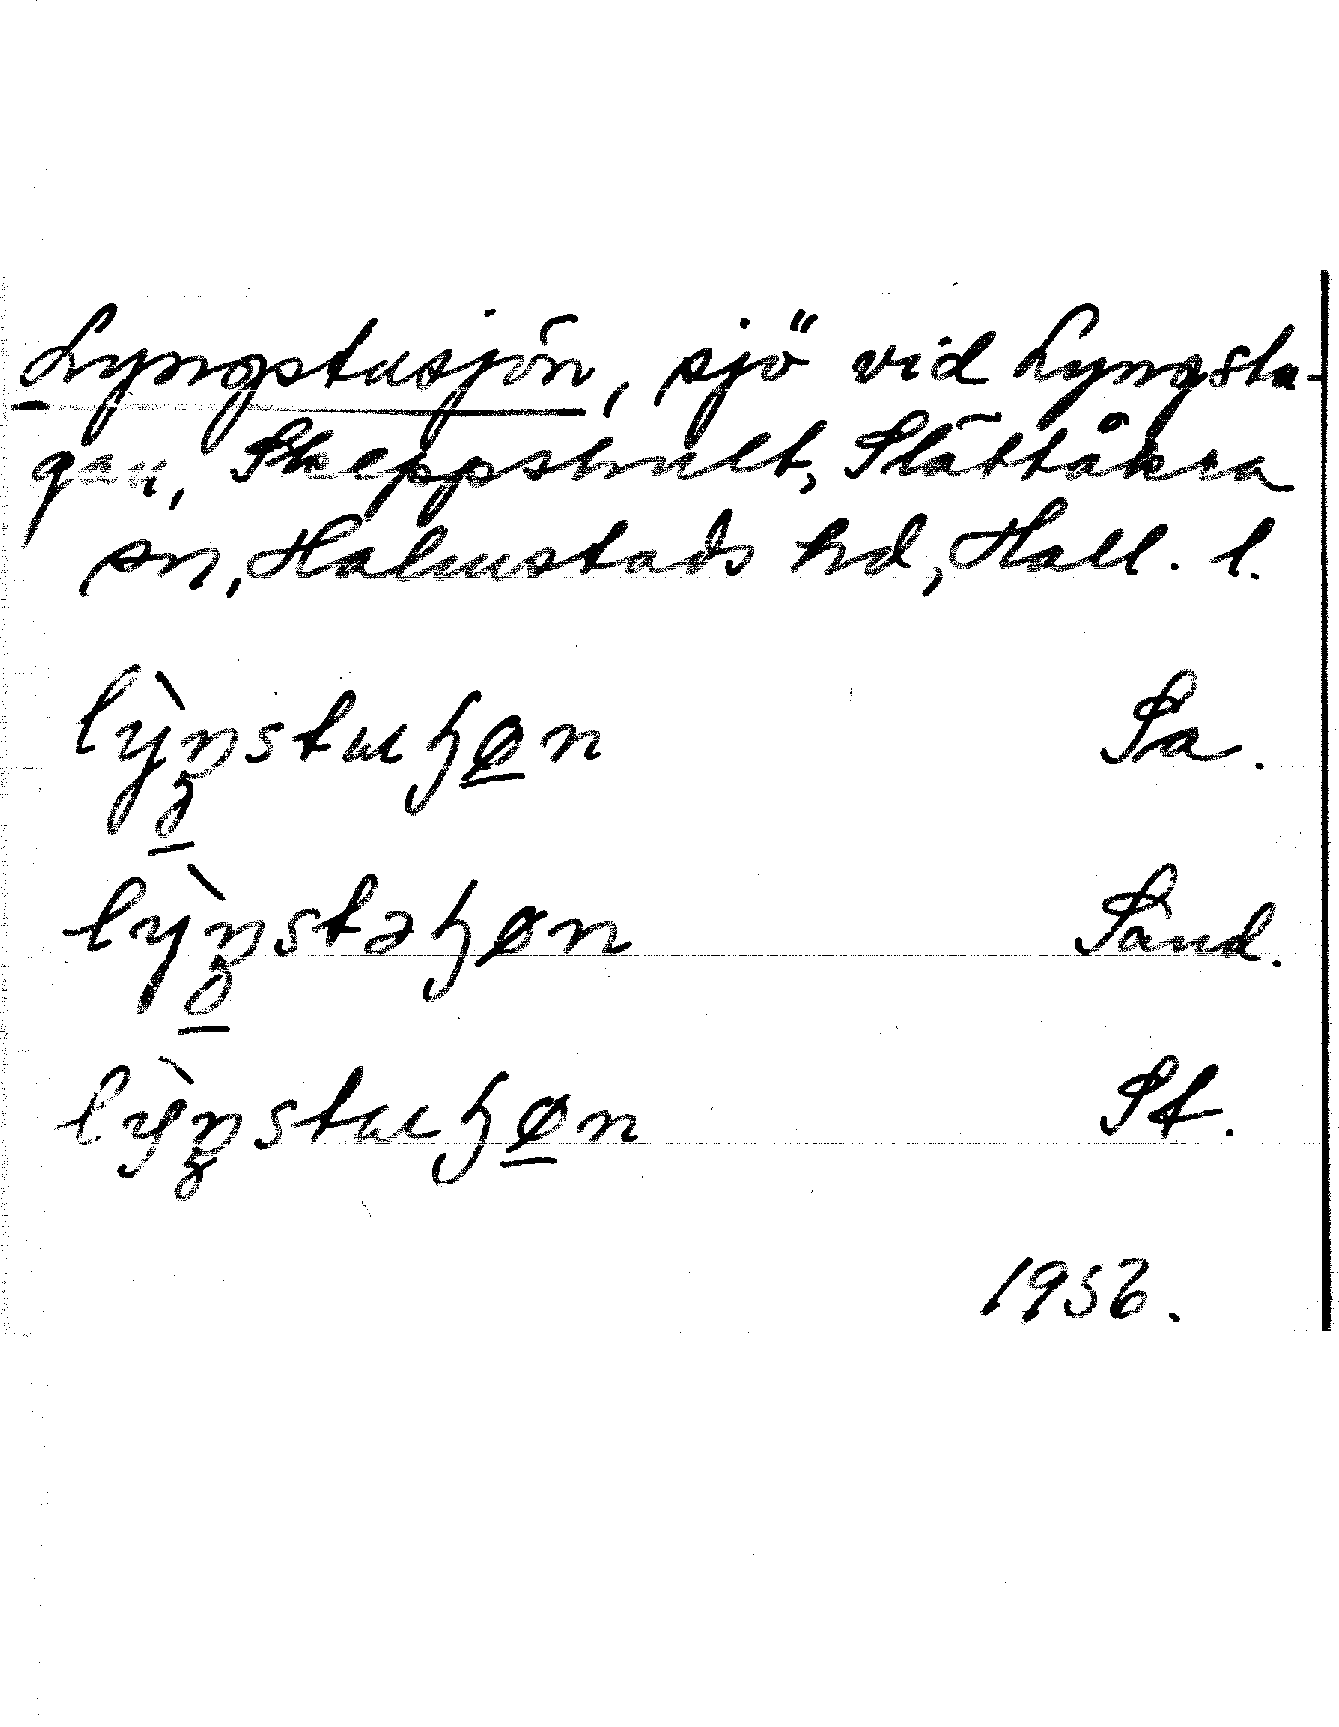 Lyngstusjön, sjö vid Lyngstu-
gan, Skeppshult, Slättåkra
sn, Halmstads hd, Hall. l.
lỳŋstuɧøn Sa.
lỳŋstəɧøn Sand.
lỳŋstuɧøn St.
1956.